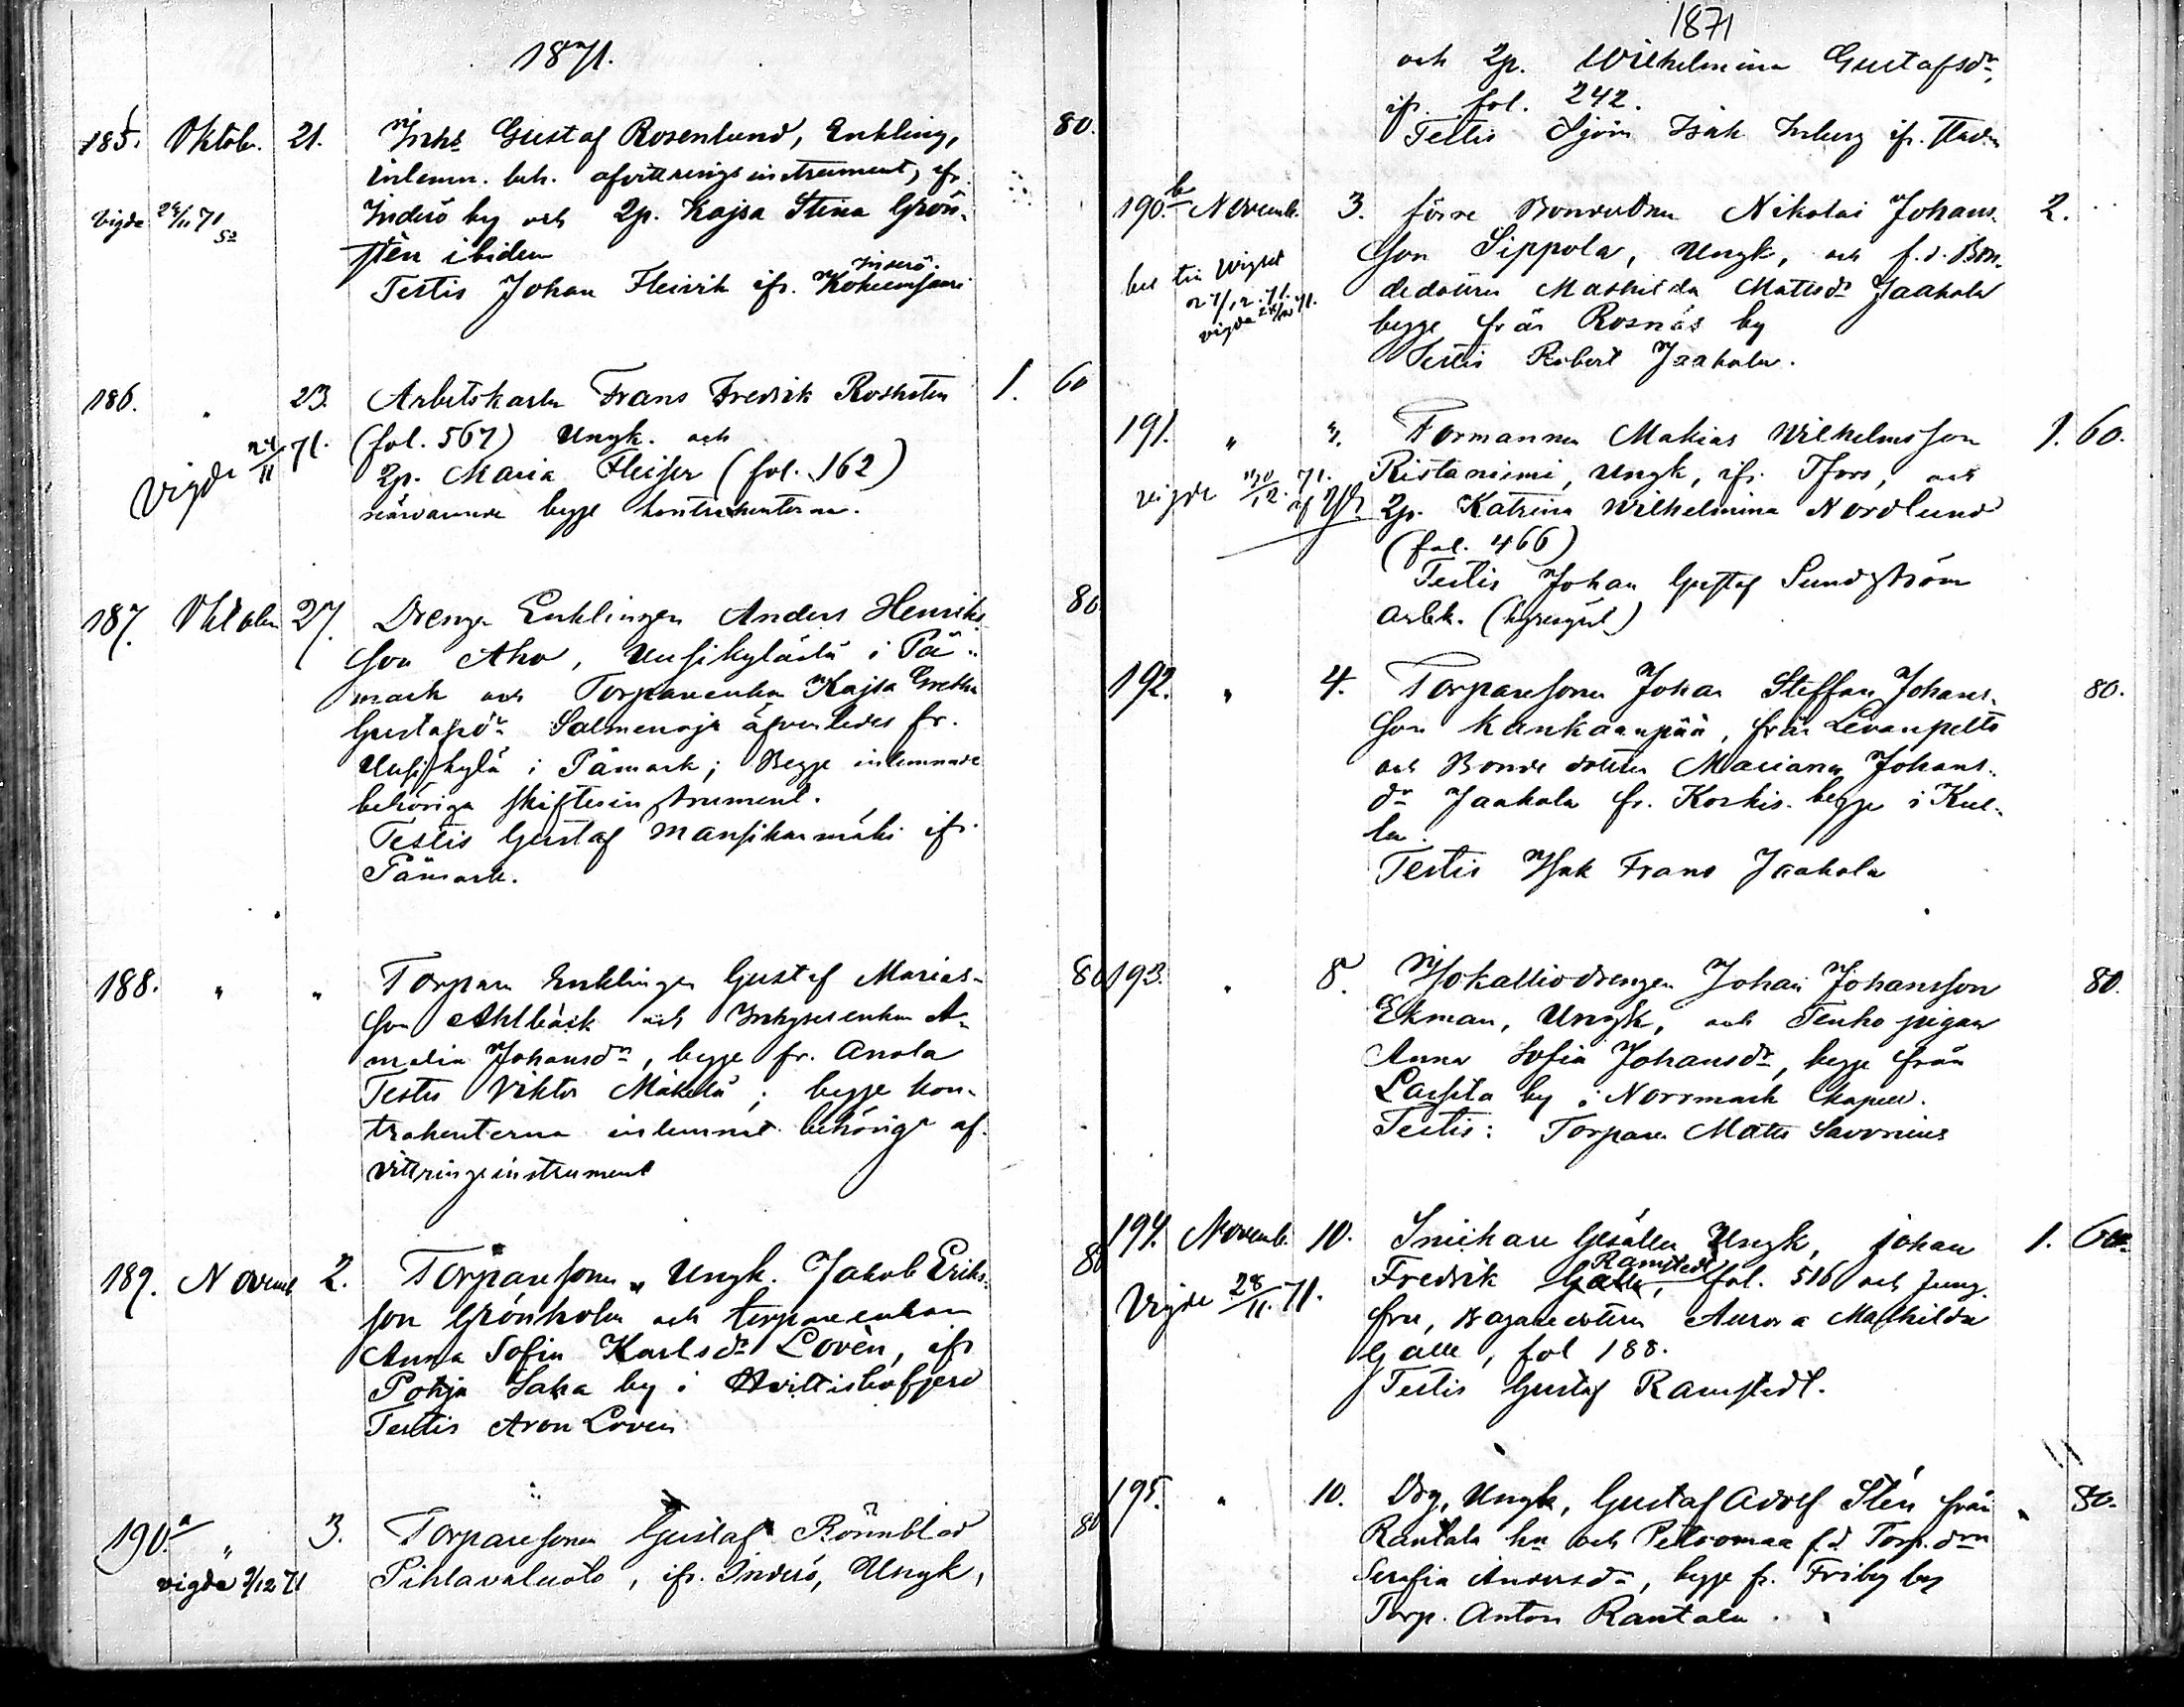 1871.
185. Oktobr. 21. Inhs Gustaf Rosenlund, Enkling, 80.
inlemn. beh. afvittringsinstrument, ifr.
vigde 24/11 71 Inderö by och 2p. Kajsa Stina Grön-
sten ibidem
Inderö.
Testis Johan Fleivik ifr.
186. " 23. Arbetskarln Frans Fredrik Roshsten 1. 60
vigde 24/11 71. (fol. 567) Ungk. och
2p. Maria Fleiser (fol. 162)
närvarande begge kontrahenterna.
187. Oktober 27. Drenge Enklingen Anders Henriks- 80
son Aho, Uusikylästä i På-
mark och Torpareenkan Kajsa Gretha
Gustafsdr Salmenoja äfvenledes fr.
Uusikylä i Påmark; Begge inlemnade
behöriga skiftesinstrument.
Testis Gustaf Mansikkamäki ifr.
Påmark.
188. " " Torpare Enklingen Gustaf Marias- 80
son Ahlbäck och Inhyses enkan A-
malia Johansdr, begge fr. Anola
Testis Viktor Mäkelä; begge kon-
trahenterna inlemnat behöriga af-
vittringsinstrument
189. Novemb 2. Torparesonen Ungk. Jakob Eriks- 80
son Grönholm och torpareenkan
Anna Sofia Karlsdr Lovèn, ifr
Pohja Saha by i Hvittisbofjerd
Testis Aron Loven
190.a " 3. Torparesonen Gustaf Rönnblad 80
vigde 9/12 71 Pihlavaluoto, ifr. Inderö, Ungk,
1871
och 2p. Wilhelmina Gustafsdr,
ifr. fol. 242.
Testis Sjöm Isak Inberg ifr. staden
190.b Novemb. 3. förre Bondedrn Nikolai Johans- 2.
son Sippola, Ungk, och f.d. Bon-
vigde 71. dedottern Mathilda Mattsdr Jaakola
begge från Rosnäs by
Testis Robert Jaakola.
191. " 3. Formannen Makias Wilhelmsson 1. 60.
vigde 71. Ristaniemi, Ungk, ifr. Tfors, och
2p. Katrina Wilhelmina Nordlund
(fol. 466)
Testis Johan Gustaf Sundström
Arbk.
192. " 4. Torparesonen Johan Steffan Johans- 80.
son Kankaanpää, från Levanpelto
och Bonde dottern Mariana Johans-
dr Jaakola fr. Koskis. begge i Kul-
la.
Testis Isak Frans Jaakola
193. " 8. Isokalliodrengen Johan Johansson 80.
Ekman, Ungk, och Tenho pigan
Anna Sofia Johansdr, begge från
Lassila by i Norrmark kapell.
Testis: Torparen Matts Savonius
194. Novemb. 10. Snickare Gesällen Ungk, Johan 1. 60.
Ramstedt
Vigde 28/11. 71. Fredrik Galle, fol. 516 och Jung-
fru, Bagaredottern Aurora Mathilda
Galle, fol 188.
Testis Gustaf Ramstedt.
195. " 10. Drg, Ungk, Gustaf Adolf Stén från 80.
Rantala hn och Petoomaa f.d. Torp. drn
Serafia Andersdr, begge fr. Friby by
Torp. Anton Rantala.